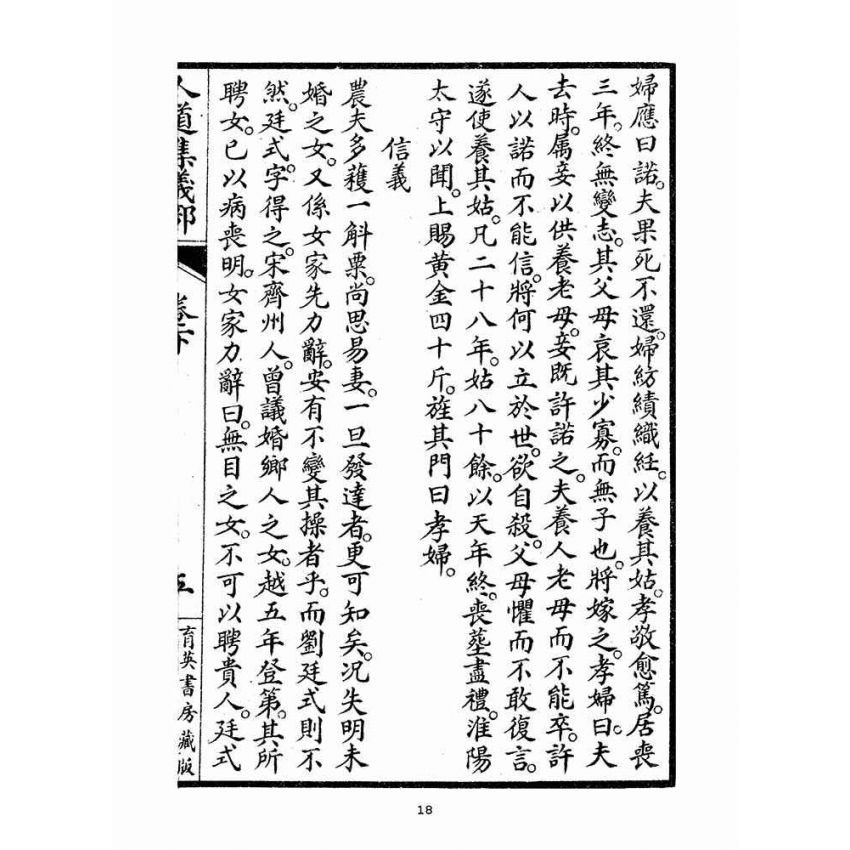 婦應曰諾。夫果死不還。婦紡績織紝。以養其姑。孝敬愈篤。居喪
三年。終無變志。其父母哀其少寡。而無子也。將嫁之。孝婦曰。夫
去時。属妾以供養老母。妾既許諾之。夫養人老母而不能卒。許
人以諾而不能信。將何以立於世。欲自殺。父母懼而不敢復言。
遂使養其姑。凡二十八年。姑八十餘。以天年終。喪塟盡禮。淮陽
太守以聞。上賜黄金四十斤。旌其門曰孝婦。
信義
農夫多蓷一斛粟。尚思易妻。一旦發達者。更可知矣。况失明未
婚之女。又係女家先力辭。安有不變其操者乎。而劉廷式則不
然。廷式字得之。宋齊州人。曾議婚鄉人之女。越五年登第。其所
聘女。已以病喪明。女家力辭曰。無目之女。不可以聘貴人。廷式
人道集義部
卷下
五
育英書房藏版
18